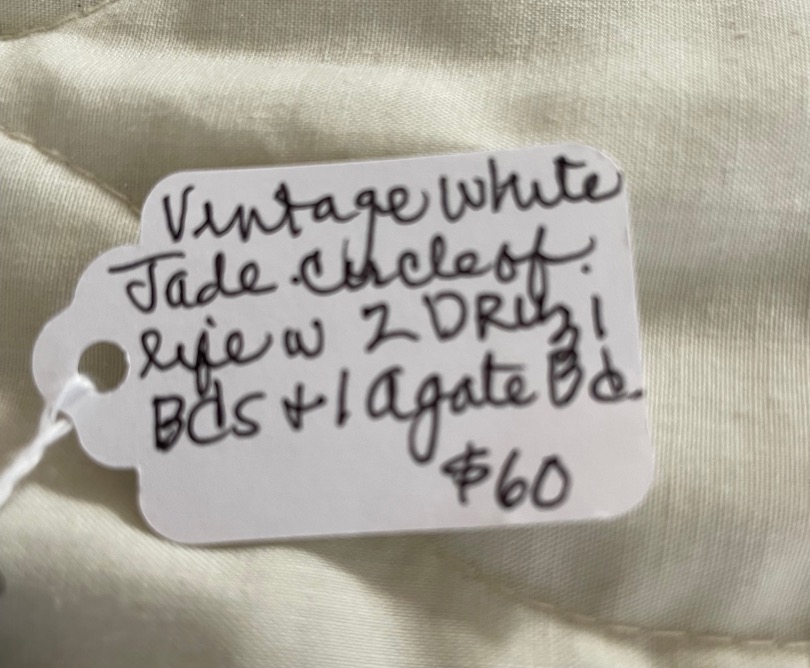 Vintage White
Jade Circle of
life w 2 DRuzi
Bds + 1 Agate Bd.
$60